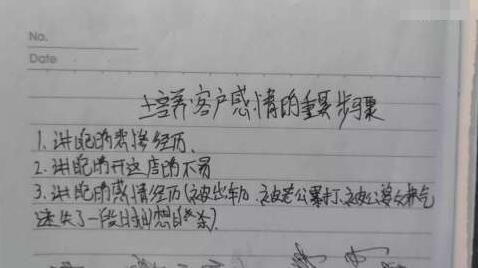 No.
Date
培养客户感情的重要步骤
1. 讲她的悲惨经历.
2. 讲她的开这店的不易
3. 讲她的感情经历(被出轨). 被老公暴打、被公婆嫌弃
迷失了一段时间想自杀).